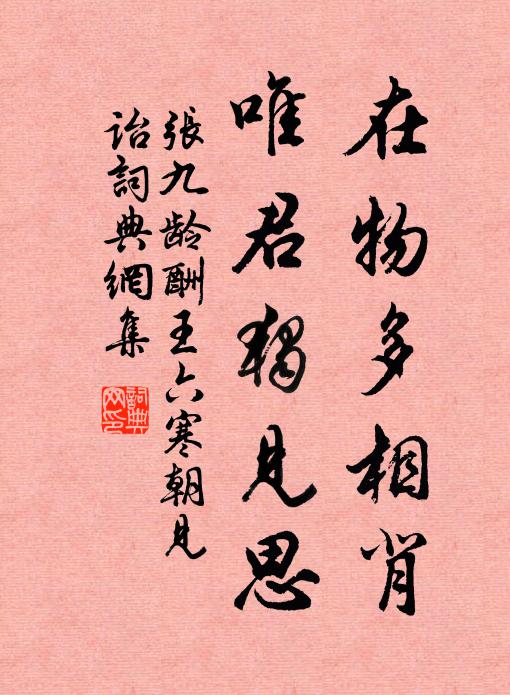 在物多相背
唯君獨見思
張九齡酬王六寒朝見
詒詞典網集
詞典
网印